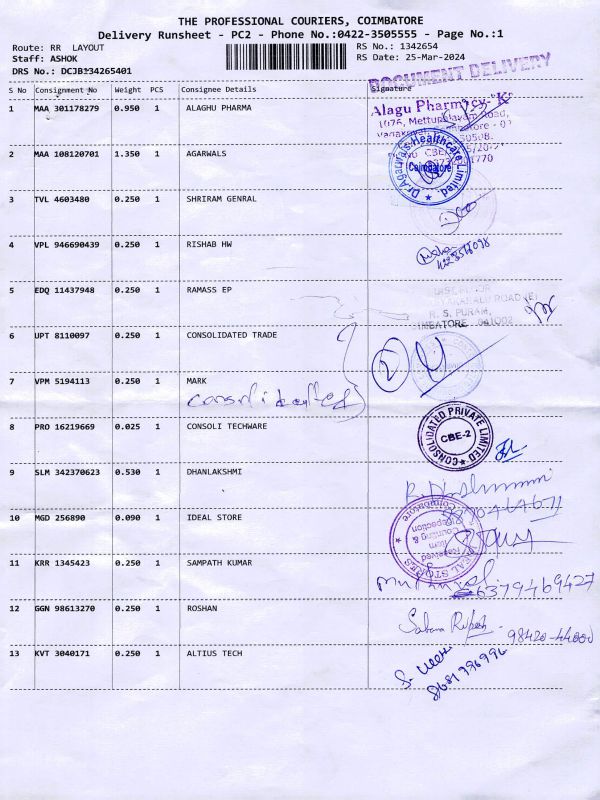 THE PROFESSIONAL COURIERS, COIMBATORE
Delivery Runsheet - PC2 - Phone No.:0422-3505555 - Page No.:1
Route: RR LAYOUT
Staff: ASHOK
DRS No.: DCJB134265401
RS No.: 1342654
RS Date: 25-Mar-2024
DOCUMENT DELIVERY
S No Consignment No Weight PCS Consignee Details Signature
1 MAA 301178279 0.950 1 ALAGHU PHARMA
Alagu Pharmacy-K
1076, Mettupalayam Road,
2 MAA 108120701 1.350 1 AGARWALS
Dr.Agarwal's Healthcare Limited.
Coimbatore
3 TVL 4603480 0.250 1 SHRIRAM GENRAL
4 VPL 946690439 0.250 1 RISHAB HW
5 EDQ 11437948 0.250 1 RAMASS EP
ROAD (E)
R. S. PURAM,
641002
6 UPT 8110097 0.250 1 CONSOLIDATED TRADE
2
7 VPM 5194113 0.250 1 MARK
Consolidated
8 PRO 16219669 0.025 1 CONSOLI TECHWARE
CONSOLIDATED PRIVATE LIMITED
CBE-2
9 SLM 342370623 0.530 1 DHANLAKSHMI
10 MGD 256890 0.090 1 IDEAL STORE
IDEAL STORES
Coimbatore
Received
Item
Counting &
Inspection
11 KRR 1345423 0.250 1 SAMPATH KUMAR
6379469427
12 GGN 98613270 0.250 1 ROSHAN
98420-44000
13 KVT 3040171 0.250 1 ALTIUS TECH
8681996996